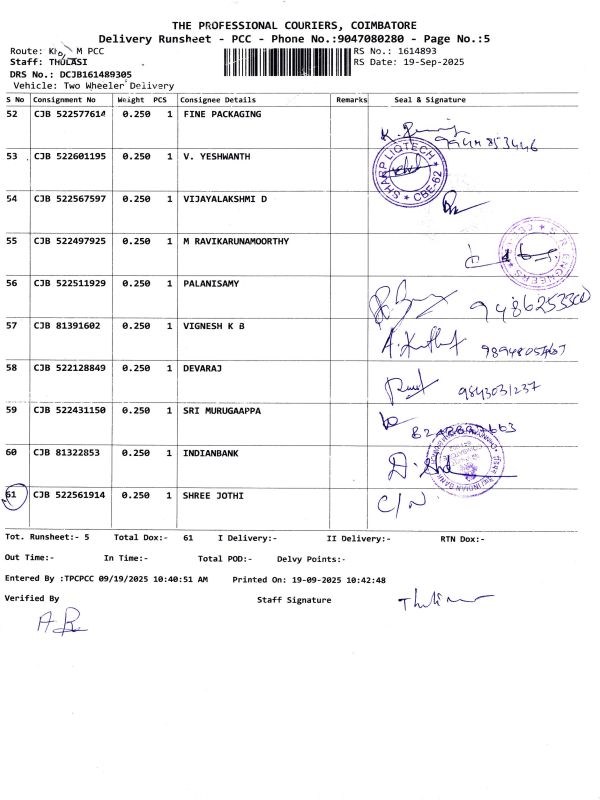 THE PROFESSIONAL COURIERS, COIMBATORE
Delivery Runsheet - PCC - Phone No.:9047080280 - Page No.:5
Route: M PCC RS No.: 1614893
Staff: THULASI RS Date: 19-Sep-2025
DRS No.: DCJB161489305
Vehicle: Two Wheeler Delivery
S No Consignment No Weight PCS Consignee Details Remarks Seal & Signature
52 CJB 522577614 0.250 1 FINE PACKAGING
9944853446
53 CJB 522601195 0.250 1 V. YESHWANTH
SHARP LIQTECH * CBE-62 *
54 CJB 522567597 0.250 1 VIJAYALAKSHMI D
55 CJB 522497925 0.250 1 M RAVIKARUNAMOORTHY
56 CJB 522511929 0.250 1 PALANISAMY
57 CJB 81391602 0.250 1 VIGNESH K B
58 CJB 522128849 0.250 1 DEVARAJ
9843031237
59 CJB 522431150 0.250 1 SRI MURUGAAPPA
60 CJB 81322853 0.250 1 INDIANBANK
INDIAN BANK
61 CJB 522561914 0.250 1 SHREE JOTHI
C/N
Tot. Runsheet:- 5 Total Dox:- 61 I Delivery:- II Delivery:- RTN Dox:-
Out Time:- In Time:- Total POD:- Delvy Points:-
Entered By :TPCPCC 09/19/2025 10:40:51 AM Printed On: 19-09-2025 10:42:48
Verified By Staff Signature